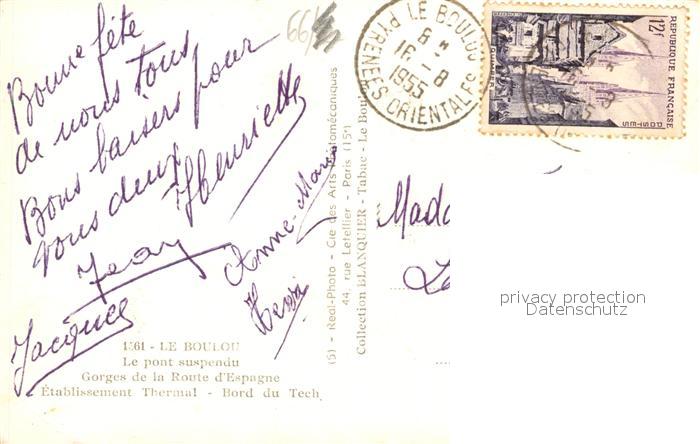 66
Bonne fête
de nous tous
Bons baisers pour
vous deux
Henriette
Jean
Anne-Marie
Jacques
Henri
1361 - LE BOULOU
Le pont suspendu
Gorges de la Route d'Espagne
Établissement Thermal - Bord du Tech
(5) - Real-Photo - Cie des Arts Photomécaniques
44, rue Letellier - Paris (15e)
Collection BLANQUIER - Tabac - Le Boulou
LE BOULOU
6 H
16 - 8
1955
PYRENEES ORIENTALES
REPUBLIQUE FRANÇAISE
12f
POSTES
QUIMPER
Mada
privacy protection
Datenschutz